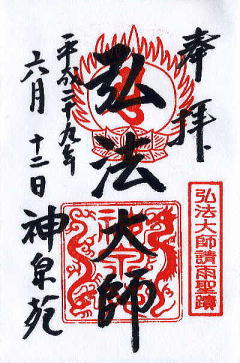 奉拝
弘法大師請雨聖蹟
弘法大師
平成二十九年
六月十二日
神泉苑